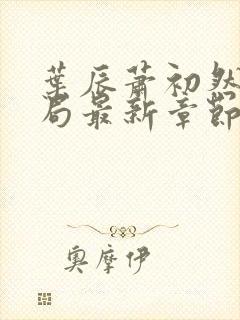 葉辰蕭初然
局最新章節
奧摩伊